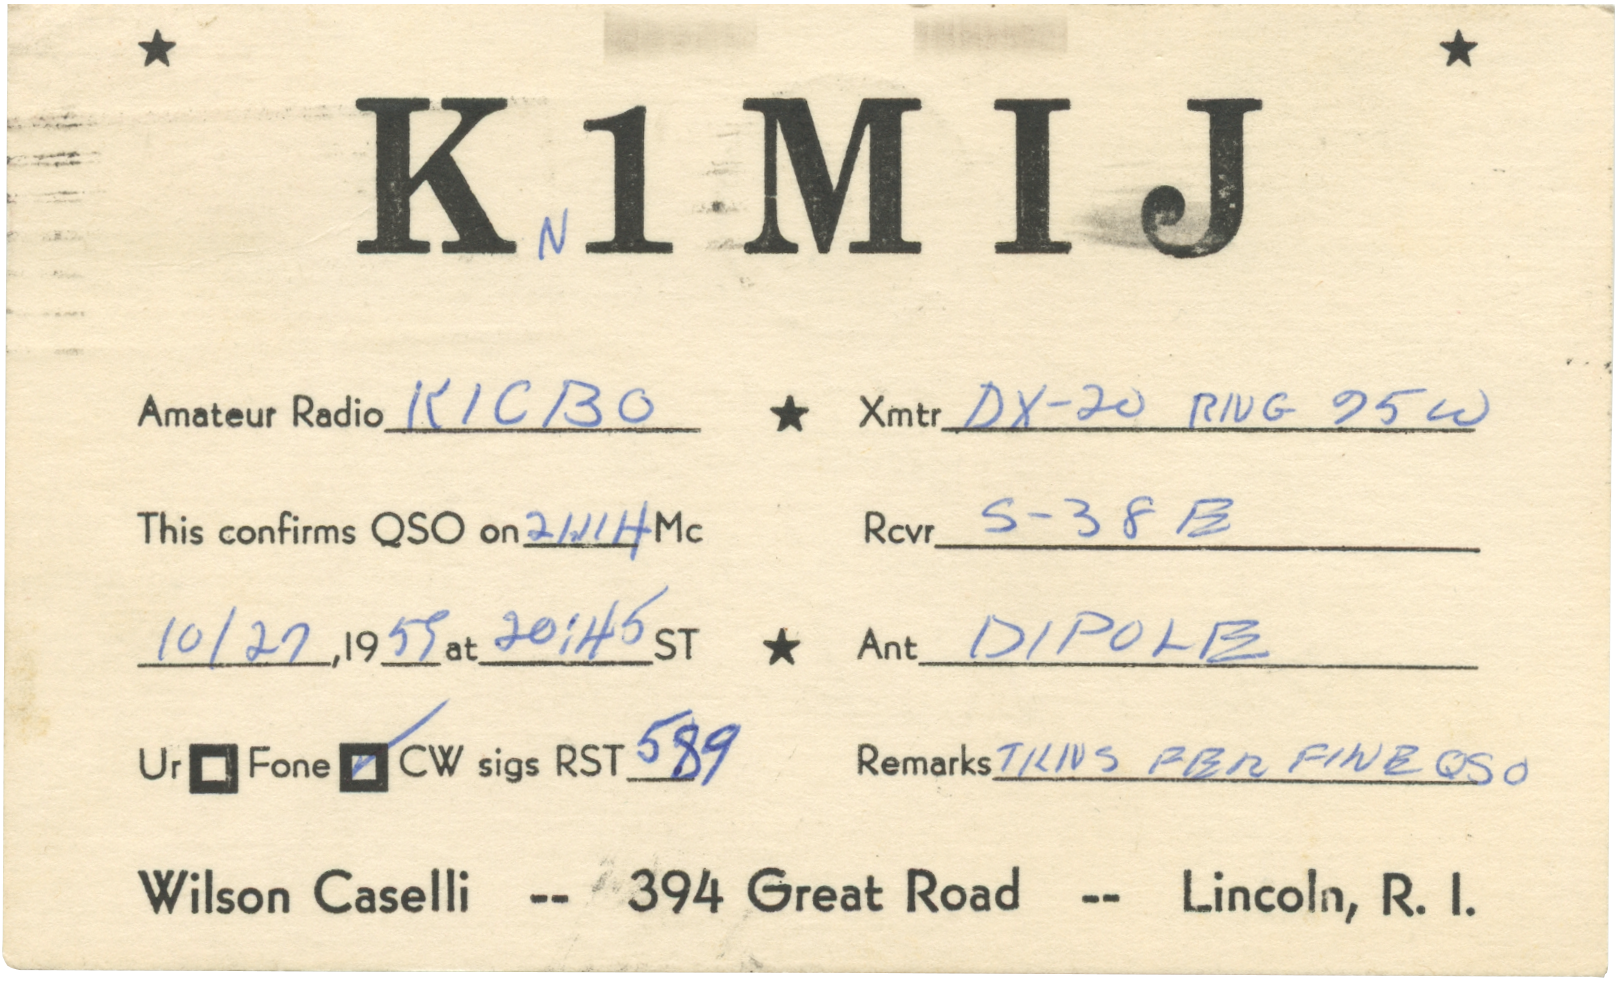 K N 1 M I J
Amateur Radio K1CBO Xmtr DX-20 RING 75W
This confirms QSO on Mc Rcvr S-38E
10/27, 1959 at 20:45 ST Ant DIPOLE
Ur Fone CW sigs RST 589 Remarks TKNS FER FINE QSO
Wilson Caselli -- 394 Great Road -- Lincoln, R. I.